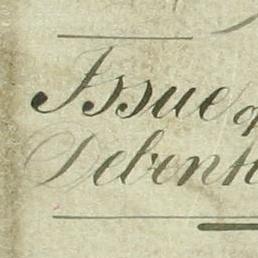 Issue of
Debent